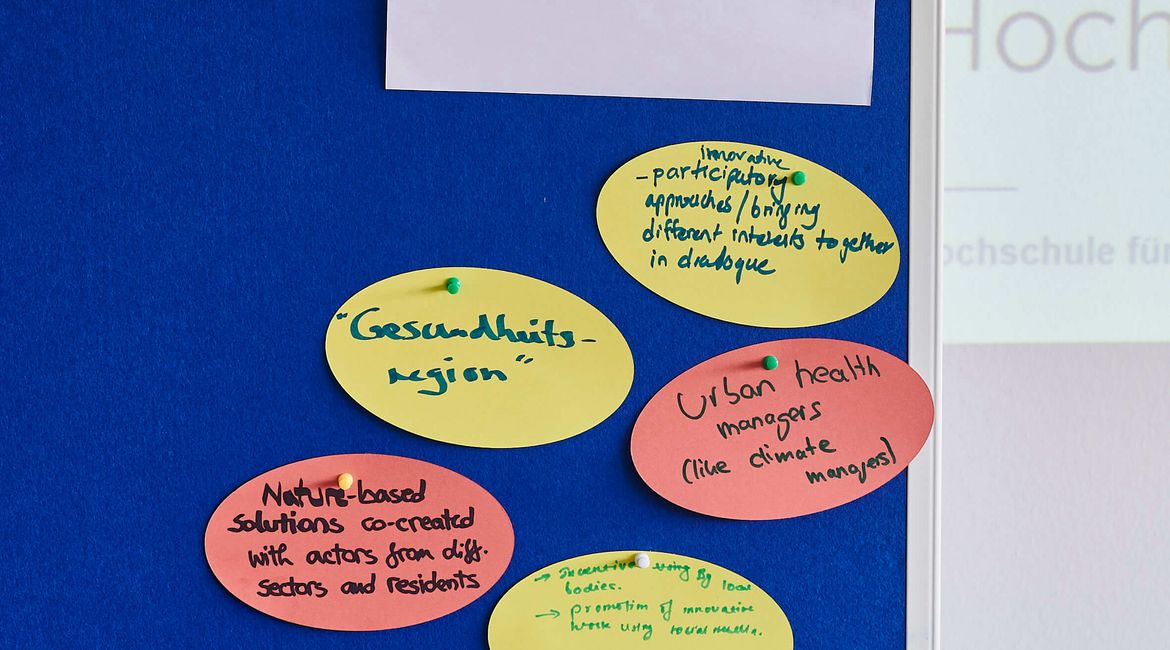 innovative
- participatory
approaches / bringing
different interests together
in dialogue
"Gesundheits-
region"
Urban health
managers
(like climate
managers)
Nature-based
solutions co-created
with actors from diff.
sectors and residents
→ Incentive using By local
bodies.
→ promotion of innovative
work using social media.
Hoch
ochschule für